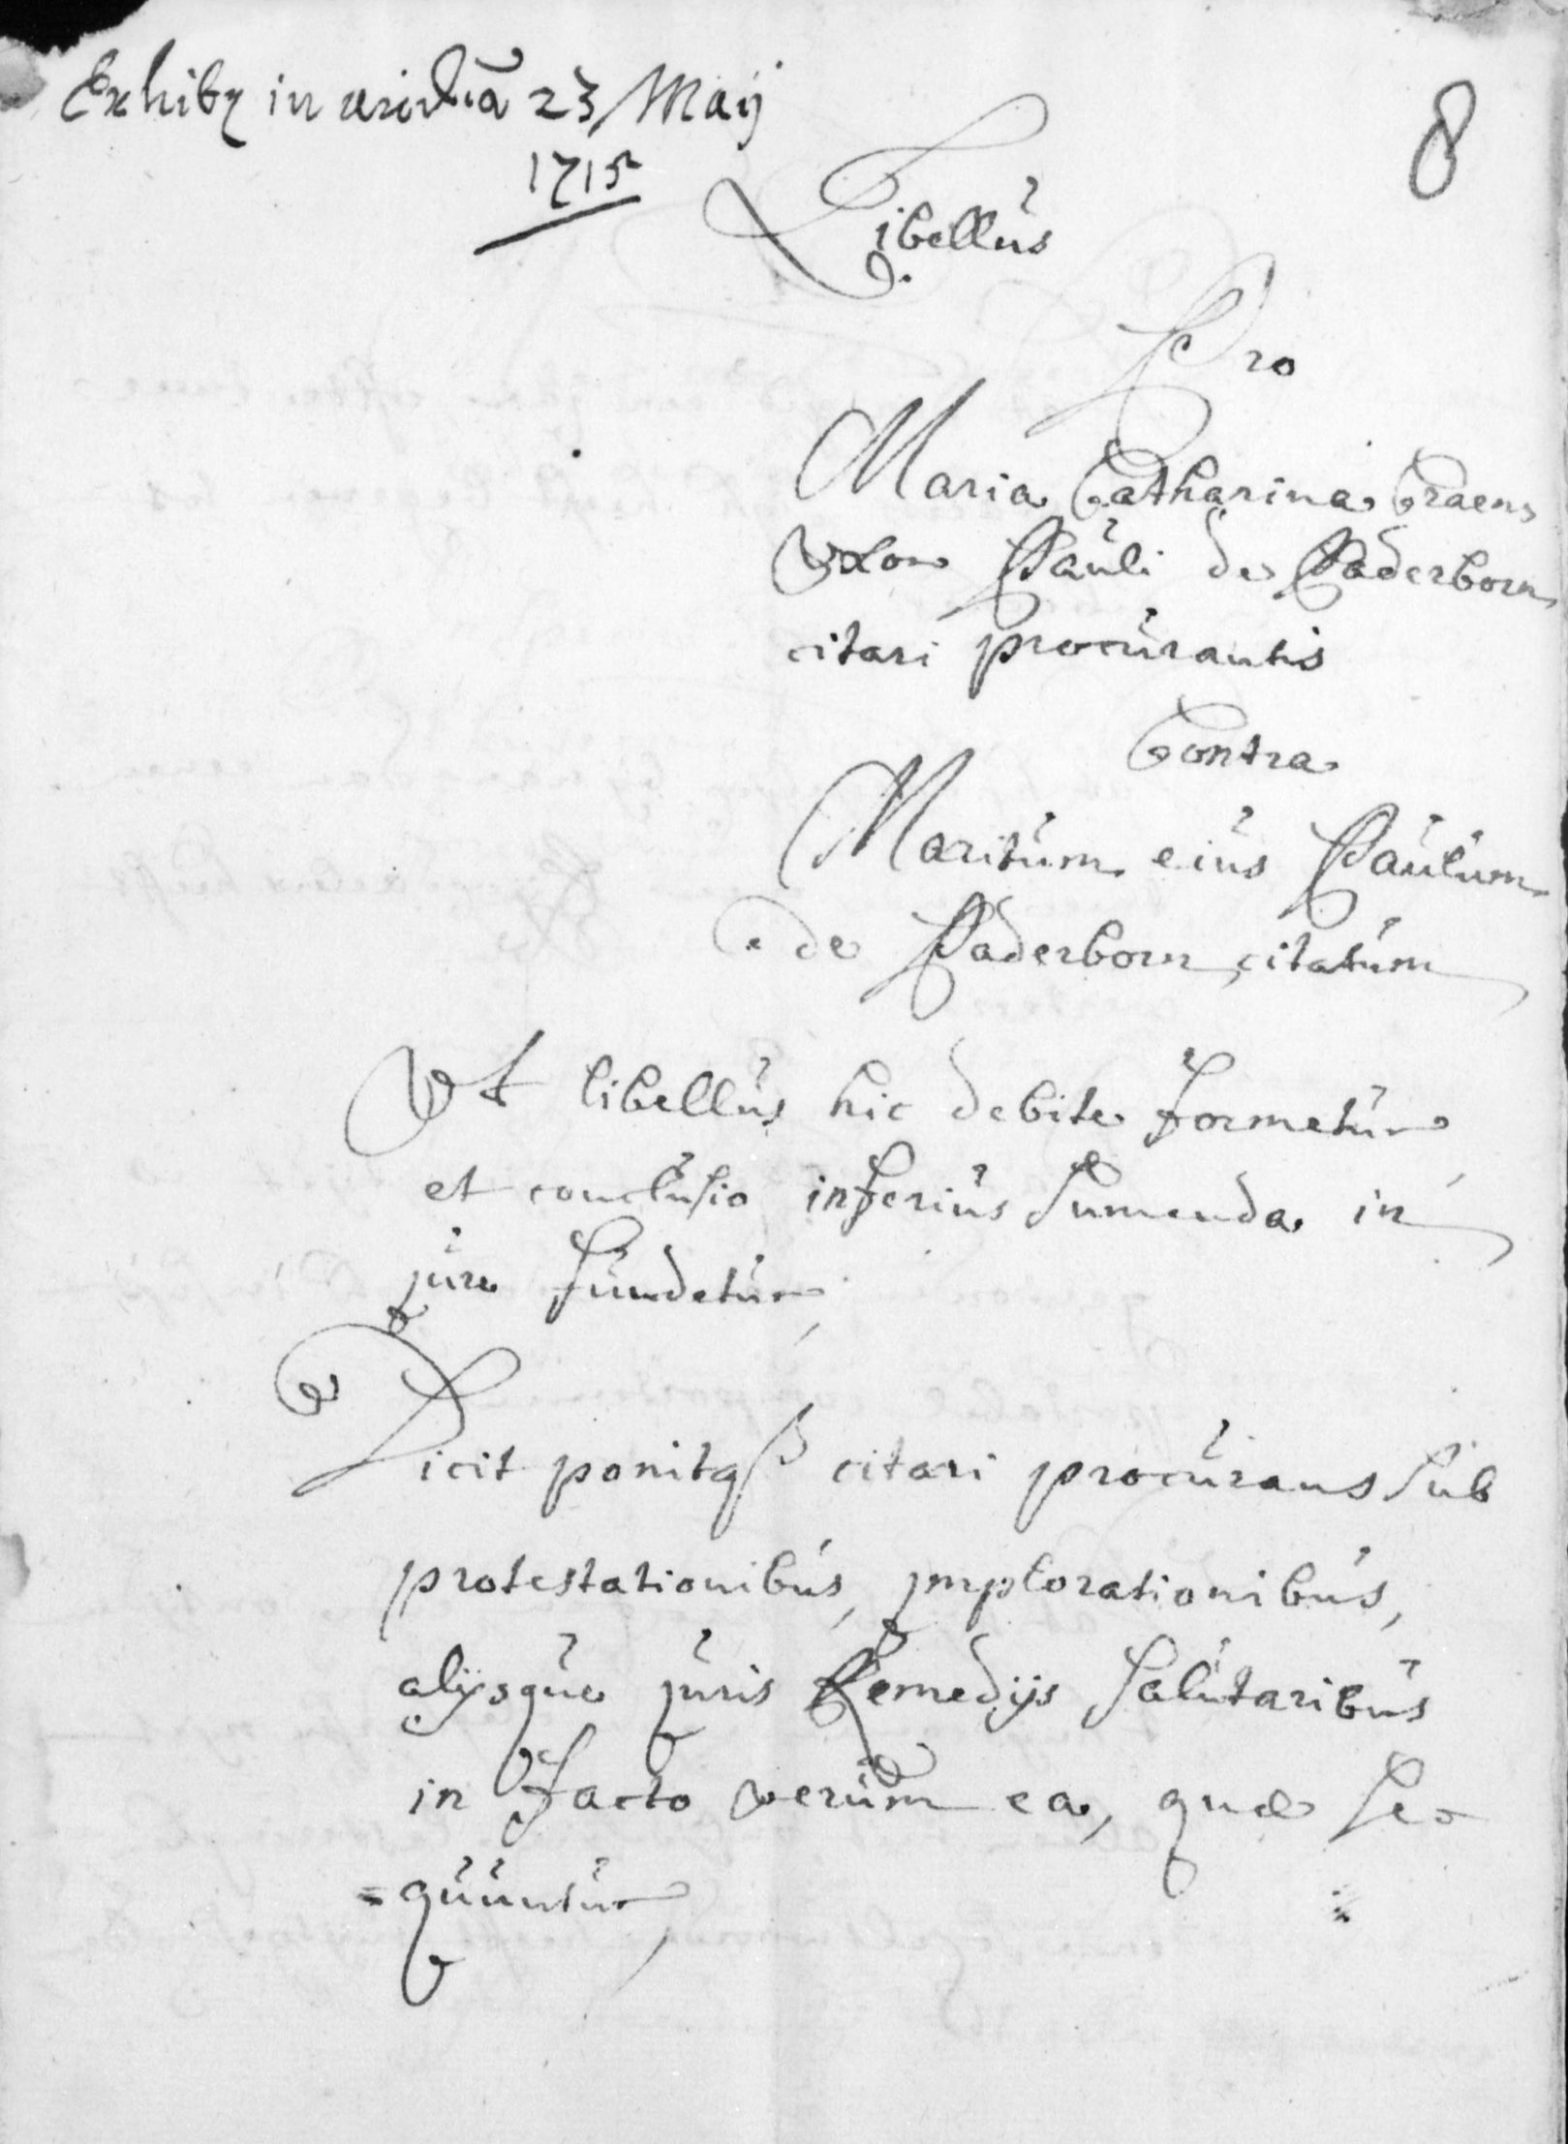 Exhibꝫ in 23 Maÿ
1715
8
Libellus
Pro
Maria Catharina Craen
Vxor Pauli de Paderborn
citari procurantis
Contra
Maritum eius Paulum
de Paderborn citatum
Vt libellus hic debite formetur
et conclusio inferius sumenda in
jure fundetur,
Dicit ponitqꝫ citari procurans sub
protestationibus, jmplorationibus,
alijsque juris Remedijs salutaribus
in facto verum ea, quæ se-
=quuntur,